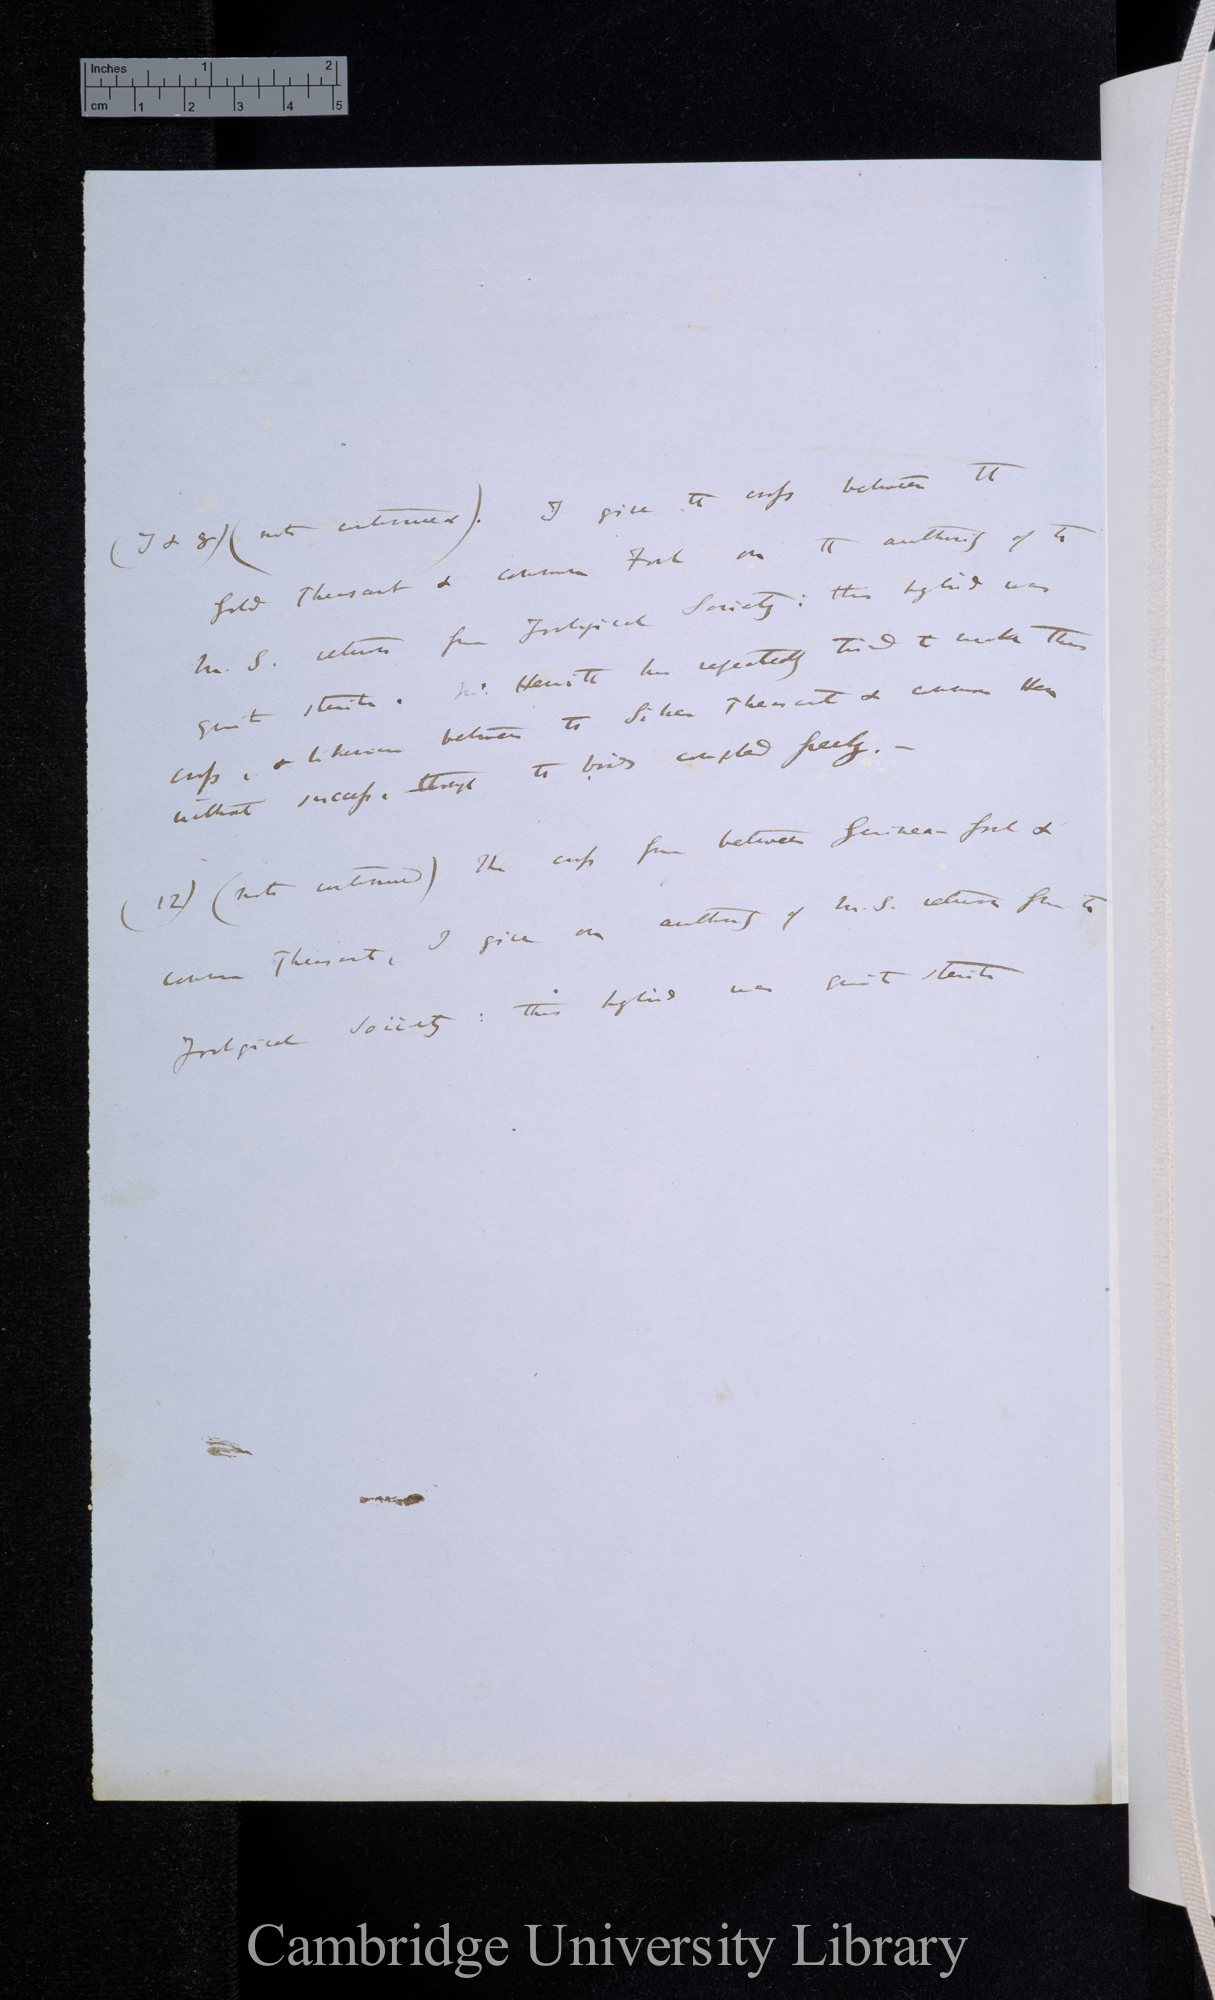 Inches 1 2
cm 1 2 3 4 5
(7 & 8) (note continued). I give the cross between the
Gold Pheasant & common Fowl on the authority of the
M.S. returns from Zoological Society: this hybrid was
quite sterile. Mr. Hewitt has repeatedly tried to make this
cross, & likewise between the Silver Pheasant & common Hen
without success, though the birds coupled freely. —
(12) (note continued) The cross from between Guinea-fowl &
common Pheasant, I give on authority of M.S. returns from the
Zoological Society: this hybrid was quite sterile
Cambridge University Library